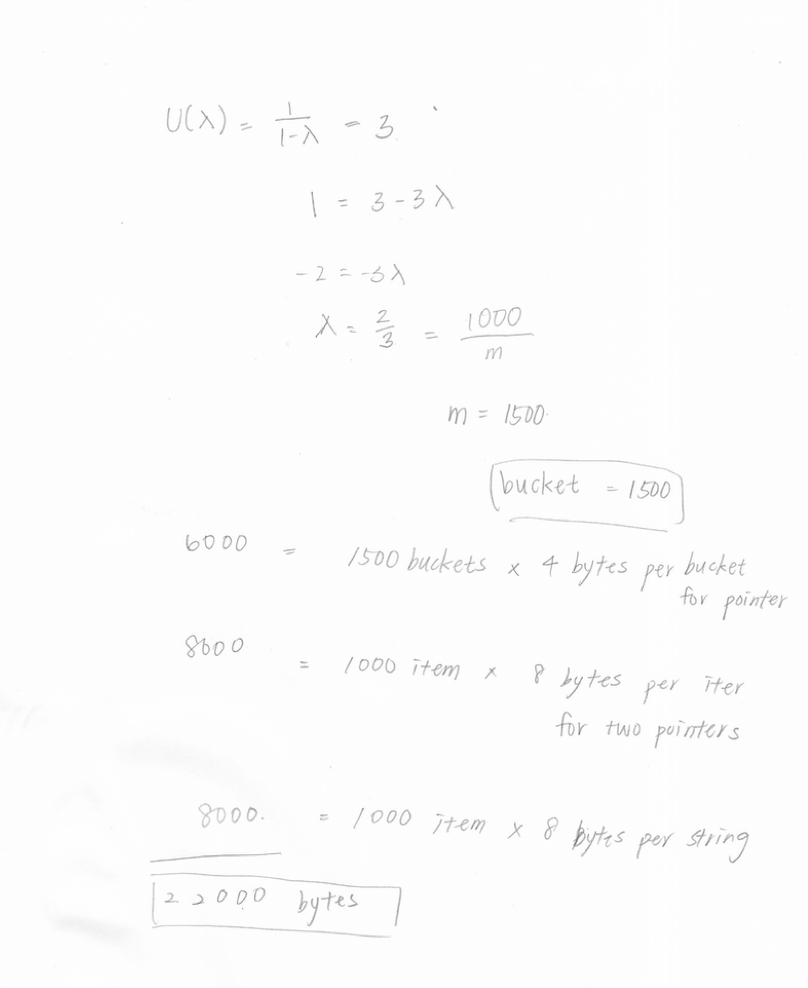 U(λ) = 1/(1-λ) = 3
1 = 3 - 3λ
-2 = -3λ
λ = 2/3 = 1000/m
m = 1500
bucket = 1500
6000 = 1500 buckets × 4 bytes per bucket
for pointer
8000 = 1000 item × 8 bytes per iter
for two pointers
8000. = 1000 item × 8 bytes per string
22000 bytes